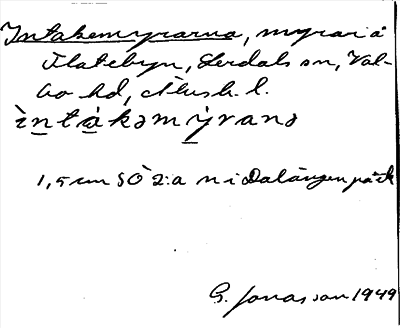 Intakemyrarna, myrar å
Flatebyn, Lerdals sn, Val-
bo hd, Älvsb. l.
ìntàkəmy̍ranə
1,5 cm SÖ 2:a n i Dalängen på ek
G. Jonasson 1949